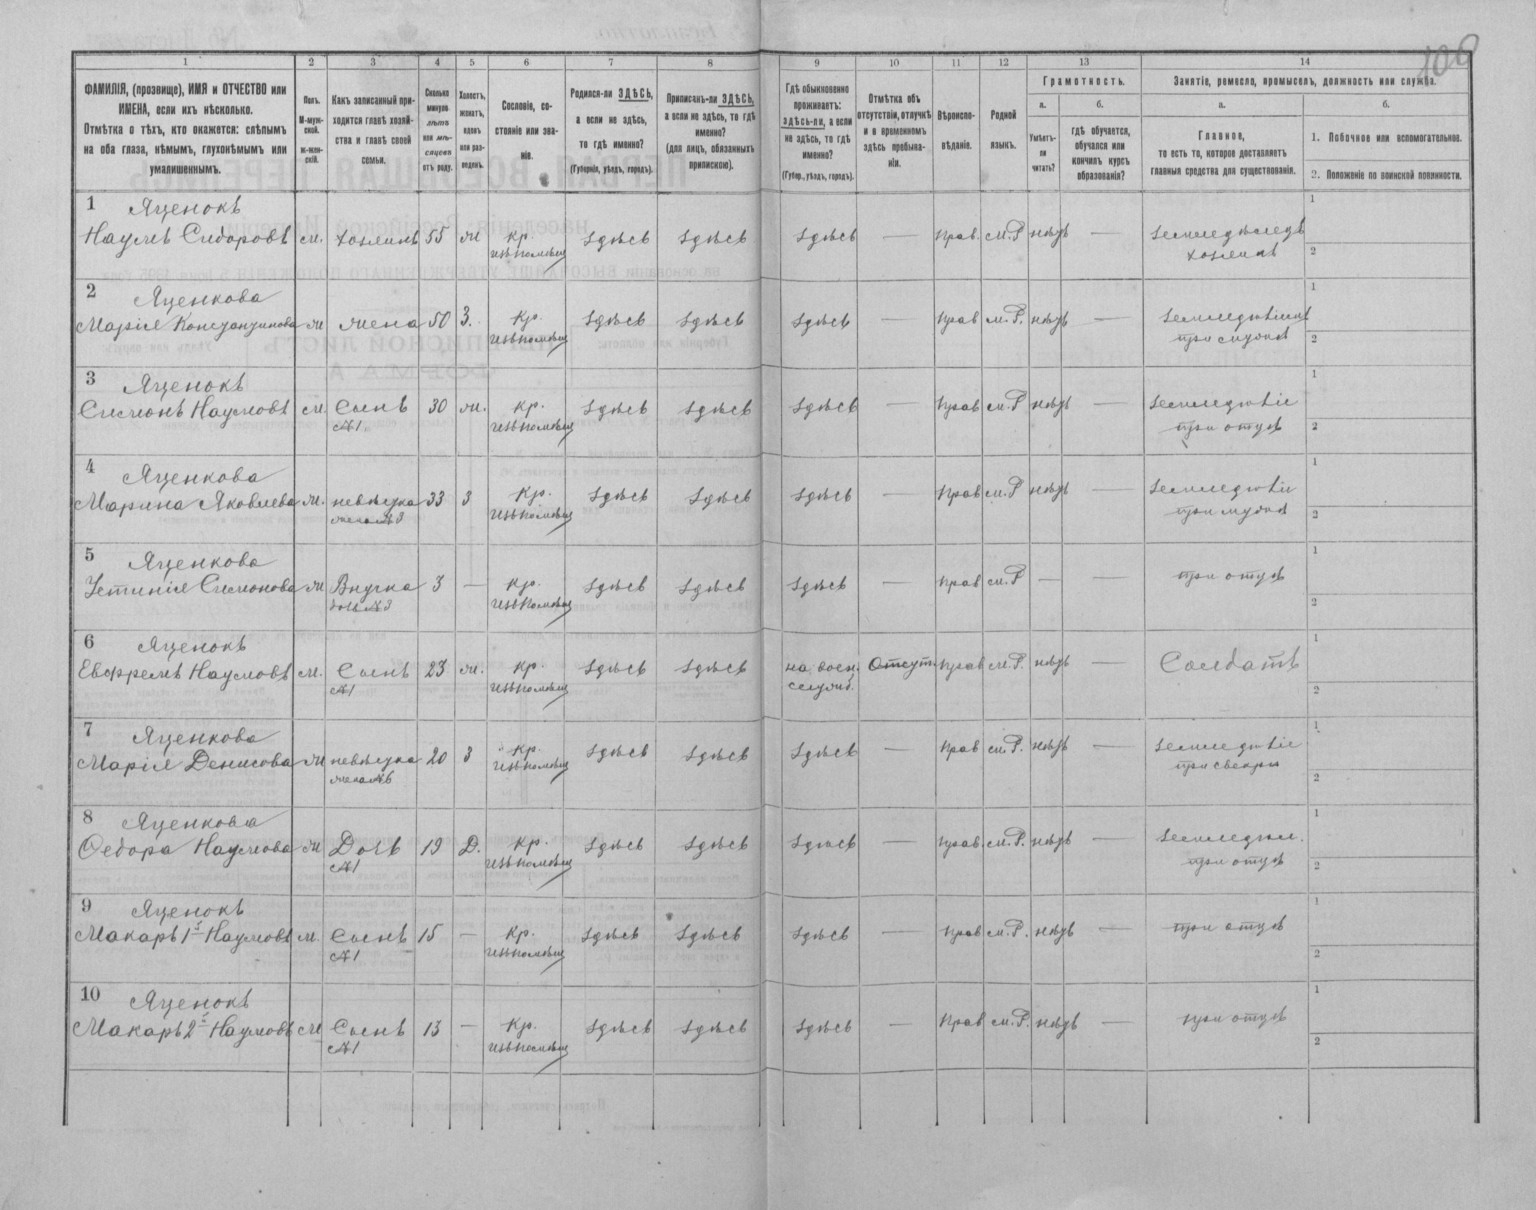 106
1 2 3 4 5 6 7 8 9 10 11 12 13 14
ФАМИЛІЯ, (прозвище), ИМЯ и ОТЧЕСТВО или
ИМЕНА, если ихъ нѣсколько.
Отмѣтка о тѣхъ, кто окажется: слѣпымъ
на оба глаза, нѣмымъ, глухонѣмымъ или
умалишеннымъ.
Полъ.
М-муж-
ской.
ж-жен-
скій.
Какъ записанный при-
ходится главѣ хозяй-
ства и главѣ своей
семьи.
Сколько
минуло
лѣтъ
или мѣ-
сяцевъ
отъ роду.
Холостъ,
женатъ,
вдовъ
или раз-
веденъ.
Сословіе, со-
стояніе или зва-
ніе.
Родился-ли ЗДѢСЬ,
а если не здѣсь,
то гдѣ именно?
(Губернія, уѣздъ, городъ).
Приписанъ-ли ЗДѢСЬ,
а если не здѣсь, то гдѣ
именно?
(для лицъ, обязанныхъ
припискою).
Гдѣ обыкновенно
проживаетъ:
здѣсь-ли, а если
не здѣсь, то гдѣ
именно?
(Губер., уѣздъ, городъ).
Отмѣтка объ
отсутствіи, отлучкѣ
и о временномъ
здѣсь пребыва-
ніи.
Вѣроиспо-
вѣданіе.
Родной
языкъ.
Грамотность.
а.
Умѣетъ-
ли
читать?
б.
гдѣ обучается,
обучался или
кончилъ курсъ
образованія?
Занятіе, ремесло, промыселъ, должность или служба.
а.
Главное,
то есть то, которое доставляетъ
главныя средства для существованія.
б.
1. Побочное или вспомогательное.
2. Положеніе по воинской повинности.
1 Яценокъ
Наумъ Сидоровъ м. хозяинъ 55 ж Кр. здѣсь здѣсь здѣсь — Прав. м.Р нѣтъ — земледѣлецъ
хозяинъ
1
2
2 Яценкова
Марія Константинова ж жена 50 З. Кр. здѣсь здѣсь здѣсь — Прав м.Р. нѣтъ —
при мужѣ
1
2
3 Яценокъ
Симонъ Наумовъ м. Сынъ 30 ж. Кр. здѣсь здѣсь здѣсь — Прав м.Р нѣтъ — земледѣліе
№1 при отцѣ
1
2
4 Яценкова
Марина Яковлева ж. невѣстка 33 З Кр. здѣсь здѣсь здѣсь — Прав м.Р нѣтъ — земледѣліе
жена №3 при мужѣ
1
2
5 Яценкова
Устинія Симонова ж Внучка 3 — Кр. здѣсь здѣсь здѣсь — Прав м.Р — — при отцѣ
дочь №3
1
2
6 Яценокъ
Евфремъ Наумовъ м. Сынъ 23 ж. Кр. здѣсь здѣсь на воен. Отсут. Прав м.Р. нѣтъ — Солдатъ
№1 служб.
1
2
7 Яценкова
Марія Денисова ж невѣстка 20 З Кр. здѣсь здѣсь здѣсь — Прав м.Р. нѣтъ — земледѣліе
жена №6 при свекрѣ
1
2
8 Яценкова
Ѳедора Наумова ж Дочь 19 Д. Кр. здѣсь здѣсь здѣсь — Прав. м.Р. нѣтъ — земледѣл.
№1 при отцѣ
1
2
9 Яценокъ
Макаръ 1й Наумовъ м. Сынъ 15 — Кр. здѣсь здѣсь здѣсь — Прав м.Р. нѣтъ — при отцѣ
№1
1
2
10 Яценокъ
Макаръ 2й Наумовъ м Сынъ 13 — Кр. здѣсь здѣсь здѣсь — Прав м.Р. нѣтъ — при отцѣ
№1
1
2